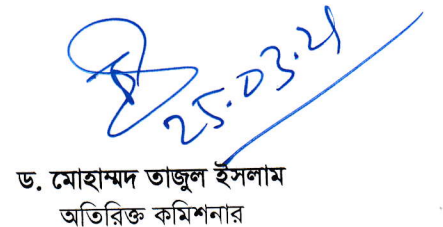 25.03.21
ড. মোহাম্মদ তাজুল ইসলাম
অতিরিক্ত কমিশনার